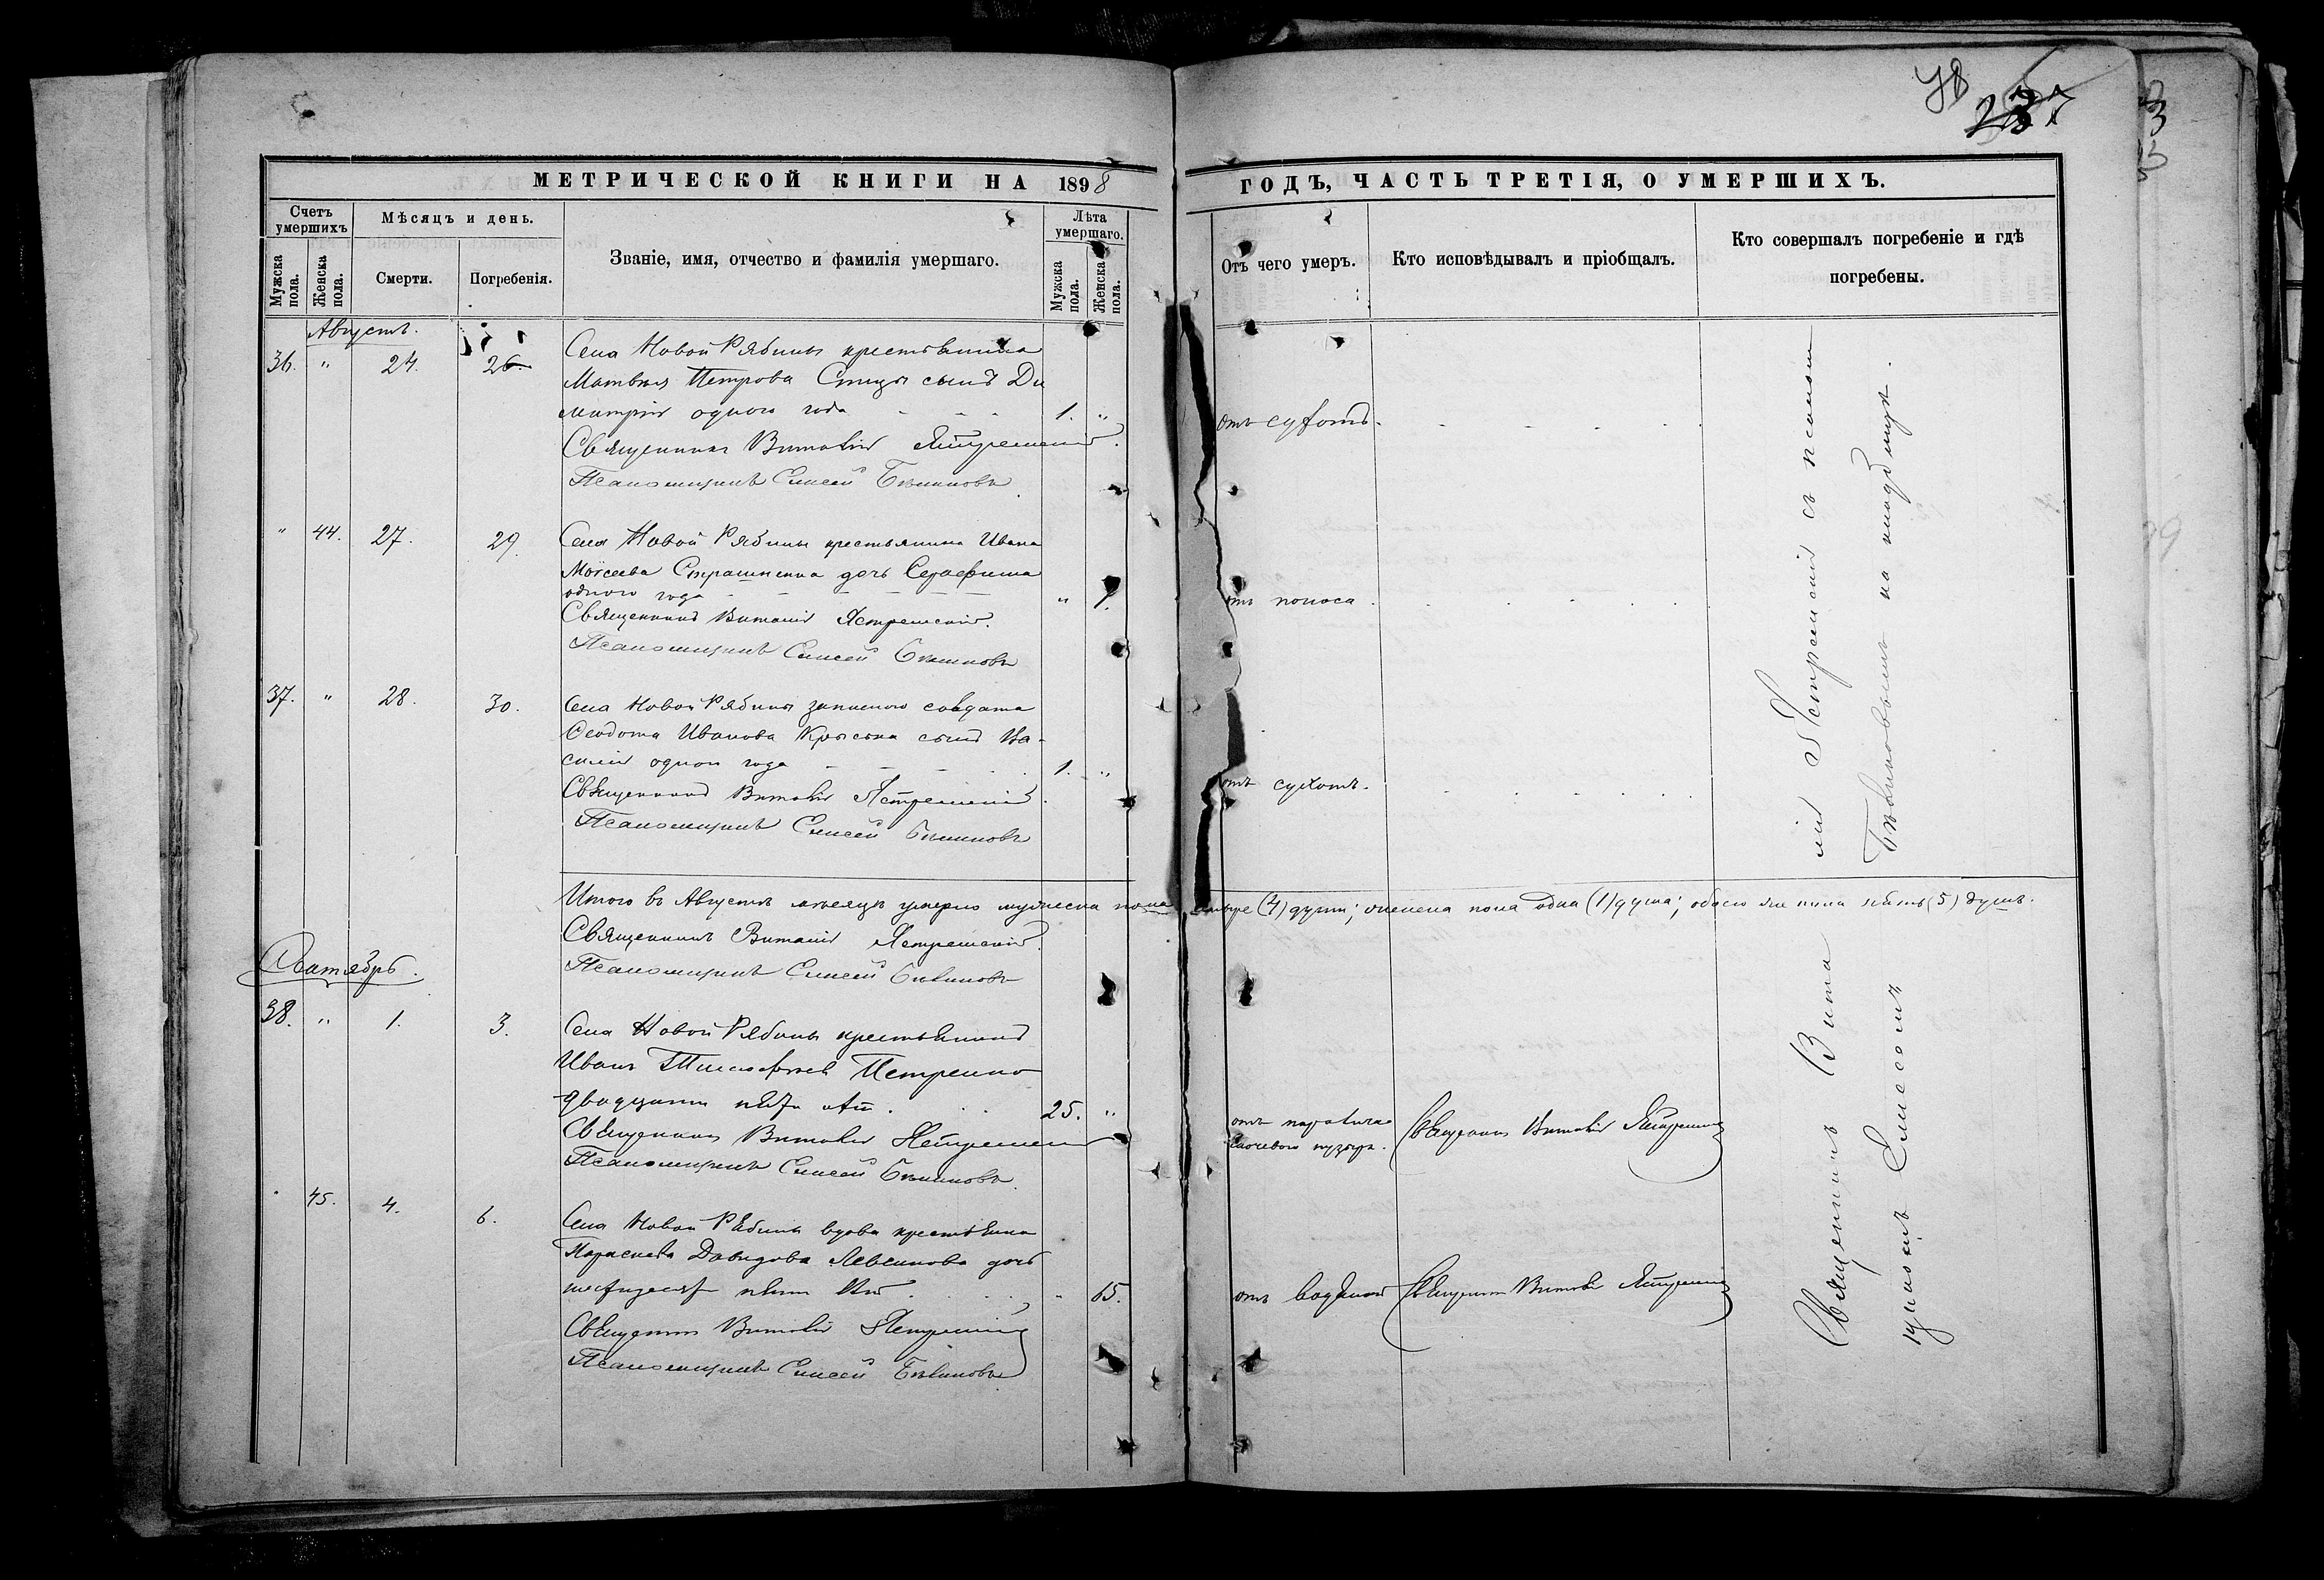 237
МЕТРИЧЕСКОЙ КНИГИ НА 1898
ГОДЪ, ЧАСТЬ ТРЕТІЯ, О УМЕРШИХЪ.
Счетъ умершихъ
Мѣсяцъ и день.
Званіе, имя, отчество и фамилія умершаго.
Лѣта умершаго.
Мужска пола.
Женска пола.
Смерти.
Погребенія.
Мужска пола.
Женска пола.
Отъ чего умеръ.
Кто исповѣдывалъ и пріобщалъ.
Кто совершалъ погребеніе и гдѣ
погребены.
Августъ.
36. " 24. 26. Села Новой Рябины крестьянина
Матвея Петрова сынъ Ди
митрій одного года 1. " отъ сухотъ.
Священникъ Виталій Ястремскій.
Псаломщикъ Елисей
" 44. 27. 29. Села Новой Рябины крестьянина Ивана
Моѵсеева дочь Серафима
одного года " 1. отъ поноса.
Священникъ Виталій Ястремскій.
Псаломщикъ Елисей
37. " 28. 30. Села Новой Рябины запасного солдата
Ѳеодота Иванова сынъ Ва-
силій одного года 1. " отъ сухотъ.
Священникъ Виталій Ястремскій.
Псаломщикъ Елисей
Итого въ Августѣ мѣсяцѣ умерло мужеска пола четыре (4) души; женска пола одна (1) душа; обоего же пола пять (5) душъ.
Священникъ Виталій Ястремскій.
Псаломщикъ Елисей
Сентябрь.
38. " 1. 3. Села Новой Рябины крестьянинъ
Иванъ Тимофеевъ Петренко
двадцати пяти лѣтъ. 25. " отъ паралича
мочевого пузыря.
Священникъ Виталій Ястремскій
Священникъ Виталій Ястремскій
Псаломщикъ Елисей
45. 4. 6. Села Новой Рябины вдова крестьянка
Параскева Давидова дочь
шестидесяти пяти лѣтъ " 65. отъ водянки Священникъ Виталій Ястремскій
Священникъ Виталій Ястремскій
Псаломщикъ Елисей
Священникъ Вита
лій Ястремскій съ псалом
щикомъ Елисеемъ
на кладбищѣ.